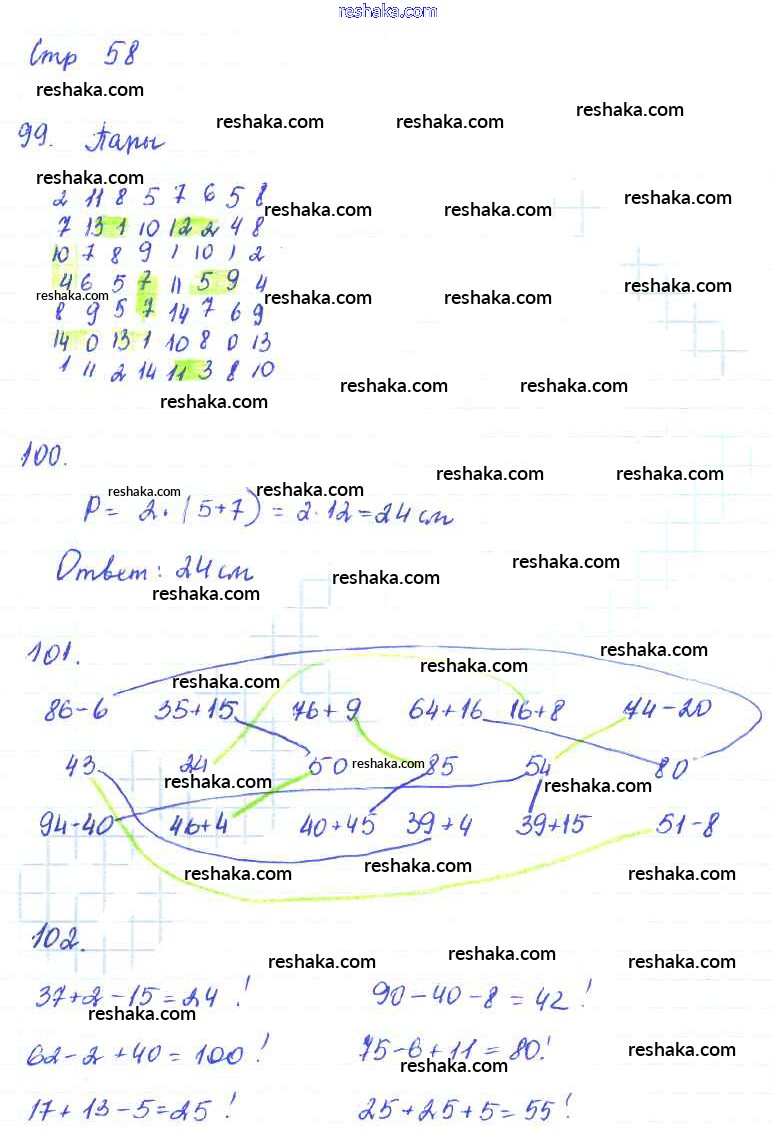 reshaka.com
Стр 58
reshaka.com
reshaka.com reshaka.com reshaka.com
99. Пары
reshaka.com
2 11 8 5 7 6 5 8
reshaka.com reshaka.com reshaka.com
7 13 1 10 12 2 4 8
10 7 8 9 1 10 1 2
4 6 5 7 11 5 9 4
reshaka.com reshaka.com reshaka.com reshaka.com
8 9 5 7 14 7 6 9
14 0 13 1 10 8 0 13
1 11 2 14 11 3 8 10
reshaka.com reshaka.com reshaka.com
100.
reshaka.com reshaka.com
reshaka.com reshaka.com
P = 2 · (5+7) = 2·12 = 24 см
Ответ: 24 см
reshaka.com reshaka.com reshaka.com
101.
reshaka.com reshaka.com reshaka.com
86-6 35+15 76+9 64+16 16+8 74-20
43 24 50 85 54 80
reshaka.com reshaka.com reshaka.com
94-40 46+4 40+45 39+4 39+15 51-8
reshaka.com reshaka.com reshaka.com
102.
reshaka.com reshaka.com reshaka.com
37+2-15=24! 90-40-8=42!
reshaka.com
62-2+40=100! 75-6+11=80!
reshaka.com reshaka.com
17+13-5=25! 25+25+5=55!